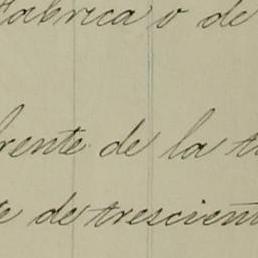 fabrica o de
frente de la
te de trescient